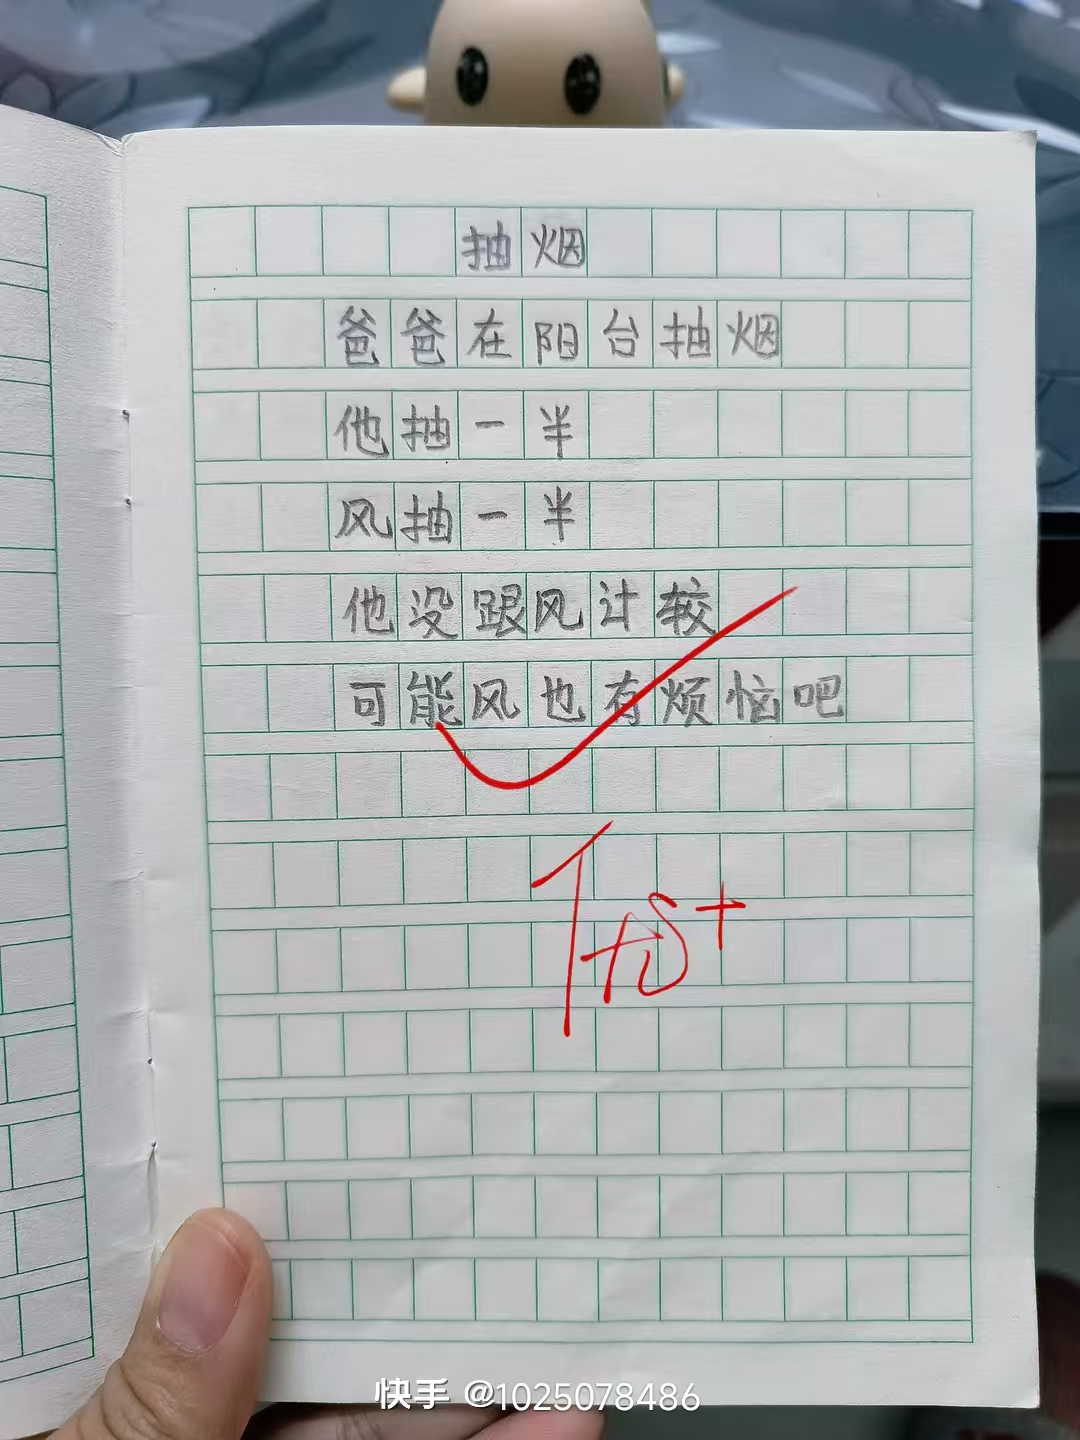 抽烟
爸爸在阳台抽烟
他抽一半
风抽一半
他没跟风计较
可能风也有烦恼吧
快手 @1025078486